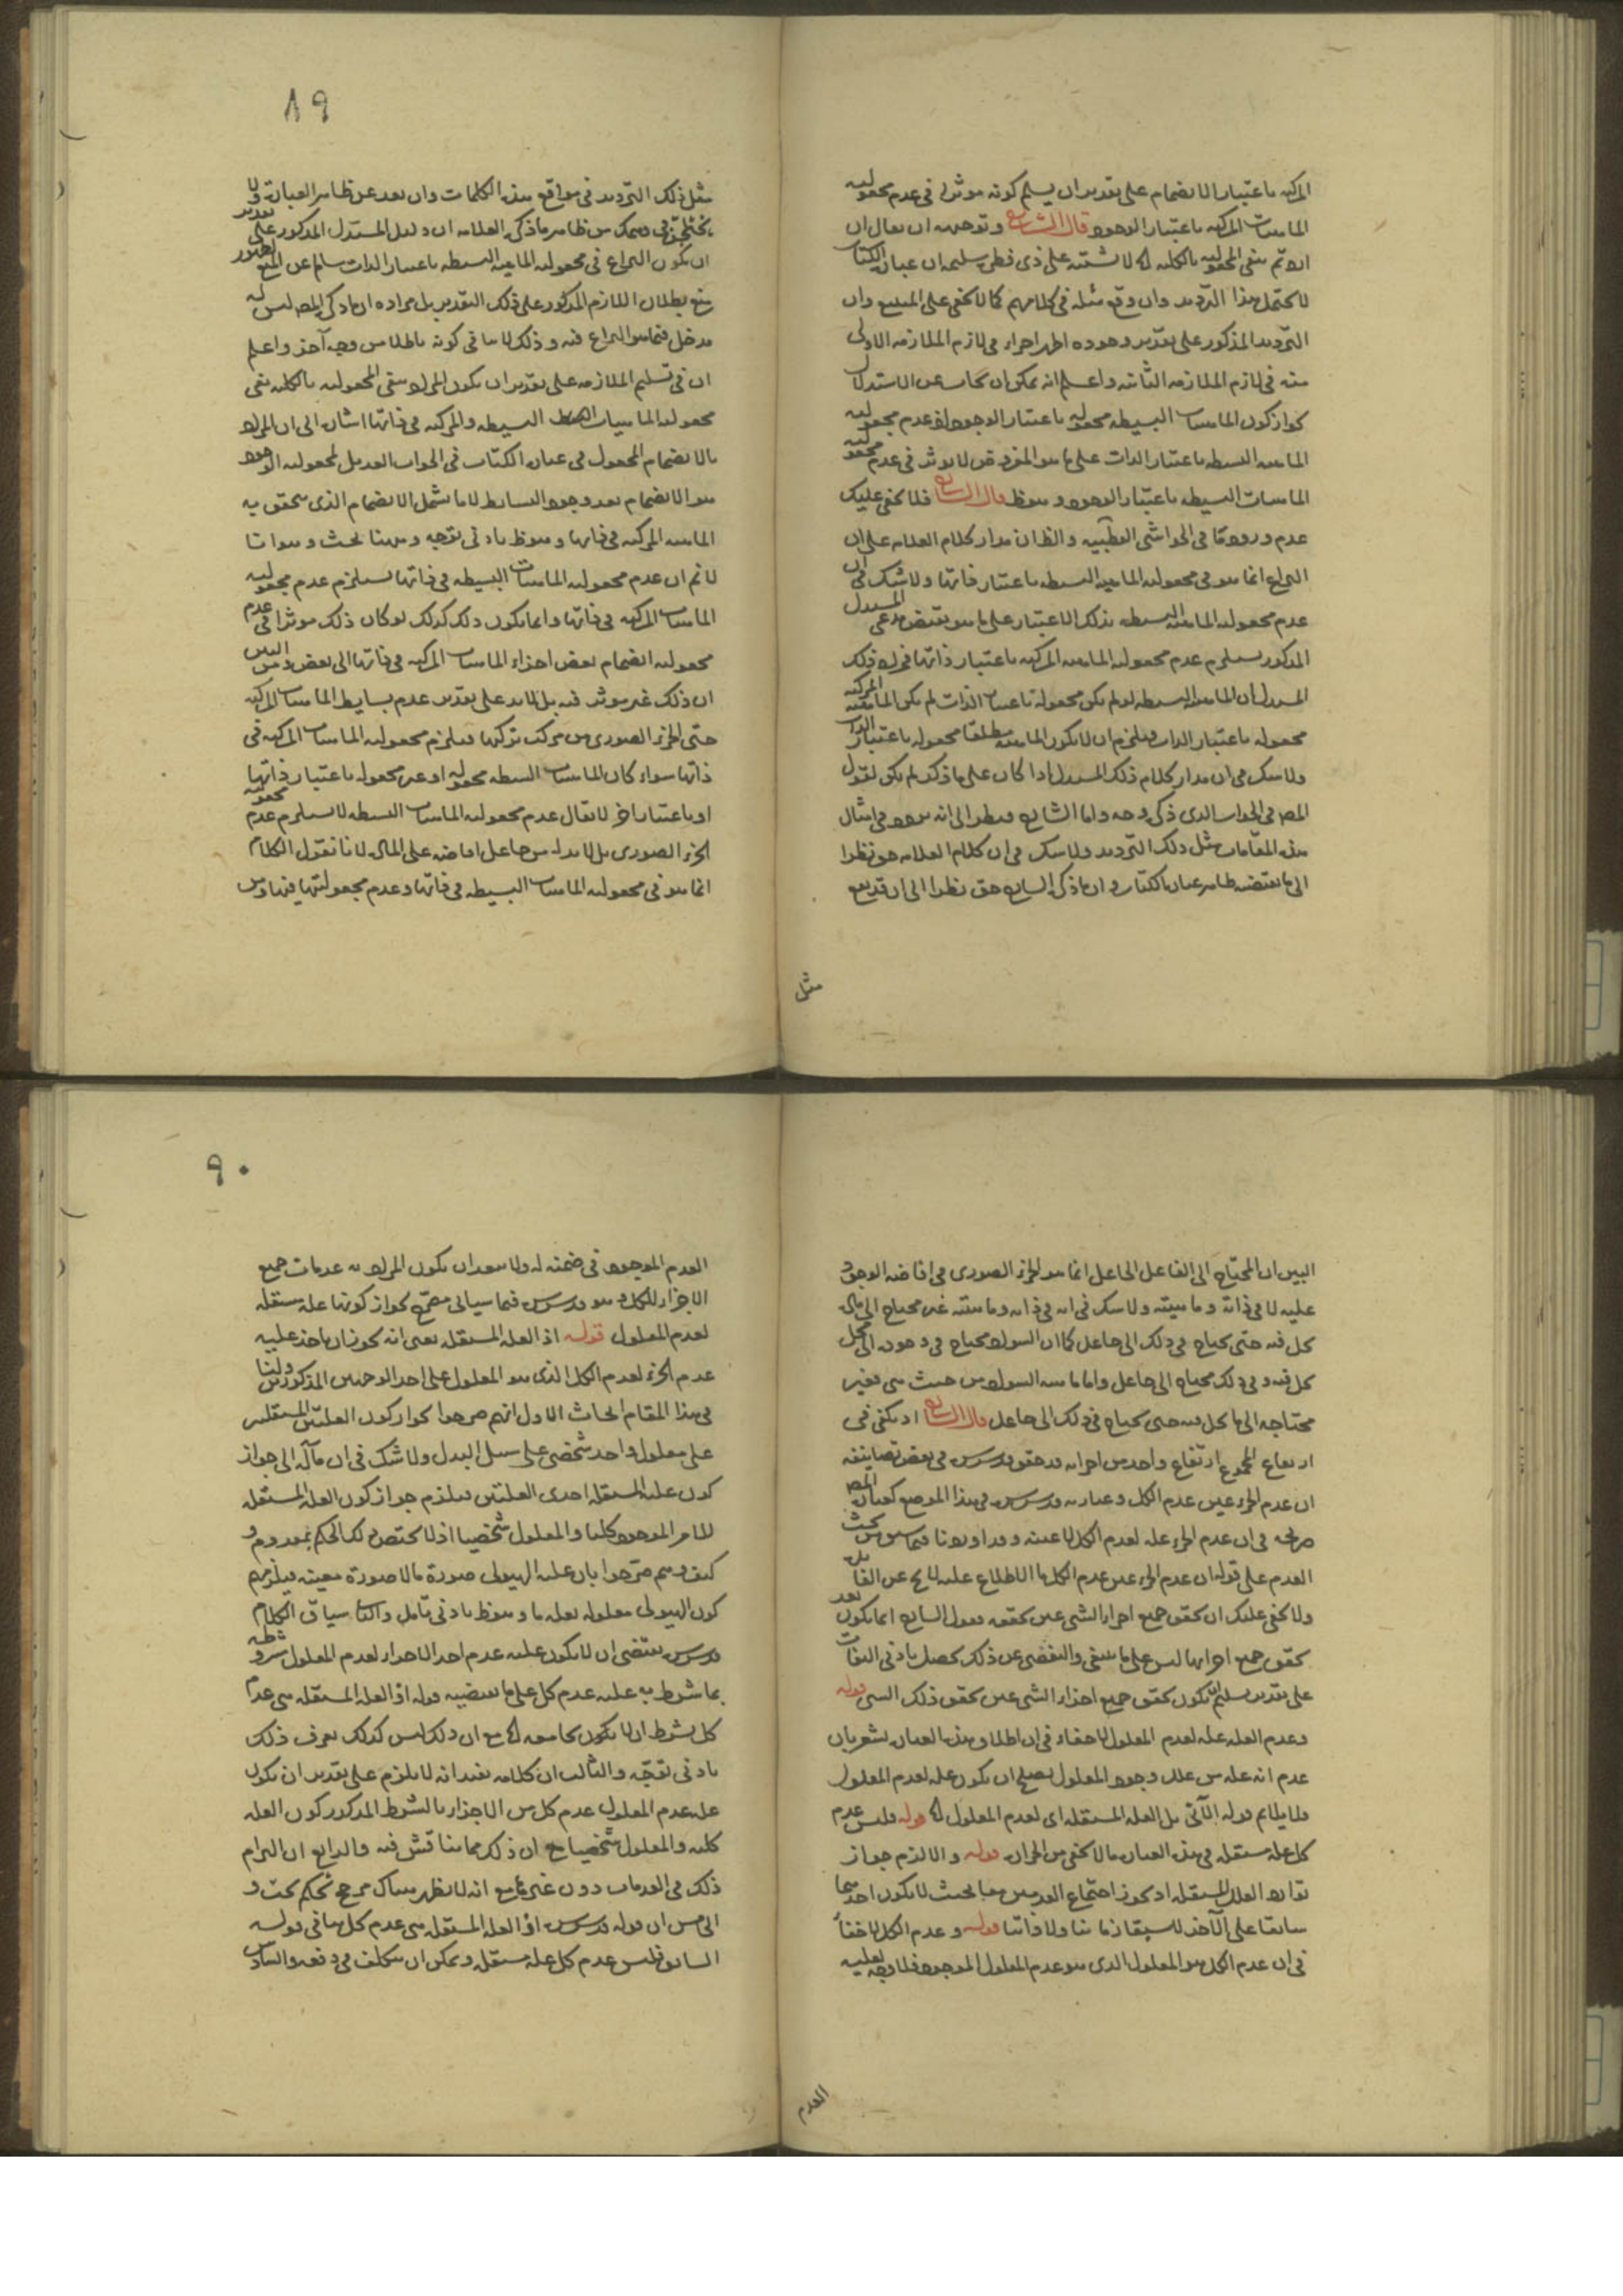 المركبة باعتبار الانضمام على تقدير ان يسلم كونه موثرا في عدم مجعولية
الماهيات المركبة باعتبار الوجود قال الشارح وتوجيهه ان يقال ان
لا يحتمل هذا الترديد وان وقع مثله في كلامهم كما لا يخفى على المتتبع وان
الترديد المذكور على تقدير وجوده اظهر اجراء في لازم الملازمة الاولى
منه في لازم الملازمة الثانية واعلم انه يمكن ان يجاب عن الاستدلال
بجواز كون الماهيات البسيطة مجعولة باعتبار الوجود اذ عدم مجعولية
الماهية البسيطة باعتبار الذات على ما هو المفروض لا يوثر في عدم مجعولية
الماهيات البسيطة باعتبار الوجود وهو ظ قال الشارح فلا يخفى عليك
عدم وروده في الحواشي القطبية والظ ان مدار كلام العلامة على ان
النزاع انما هو في مجعولية الماهية البسيطة باعتبار ذاتها ولا شك في ان
عدم مجعولية الماهية البسيطة بذلك الاعتبار على ما هو مقتضى مدعى المستدل
المذكور يستلزم عدم مجعولية الماهية المركبة باعتبار ذاتها فمراد ذلك
المستدل ان الماهية البسيطة لو لم يكن مجعولة باعتبار الذات لم يكن الماهية المركبة
مجعولة باعتبار الذات فيلزم ان لا يكون الماهية مطلقا مجعولة باعتبار الذات
ولا شك في ان مدار كلام ذلك المستدل اذا كان على ما ذكر لم يكن لقول
المص في الجواب الذي ذكره وجه واما الشارح فنظر الى انه يوجد في امثال
هذه المقامات مثل ذلك الترديد ولا شك في ان كلام العلامة حق نظرا
الى ما يقتضيه ظاهر عبارة الكتاب وان ما ذكره الشارح حق نظرا الى ان قد يقع
مثل
٨٩
مثل ذلك الترديد في مواقع هذه الكلمات وان بعد عن ظاهر العبارة ولا
ان يكون النزاع في مجعولية الماهية البسيطة باعتبار الذات سلم عن المنع
منع بطلان اللازم المذكور على ذلك التقدير بل مراده ان ما ذكره المص ليس له
مدخل فيما هو النزاع فيه وذلك لا ينافي كونه باطلا من وجه آخر واعلم
ان في تسليم الملازمة على تقدير ان يكون المراد نفي المجعولية بالكلية نفي
مجعولية الماهيات البسيطة والمركبة في ذاتها اشارة الى ان المراد
بالانضمام المجعول في عبارة الكتاب في الجواب العديل لمجعولية الوجود
هو الانضمام بعد وجود البسائط لا ما يشمل الانضمام الذي يتحقق به
الماهية المركبة في ذاتها وهو ظ بادنى توجه وههنا بحث وهو انا
لا نم ان عدم مجعولية الماهيات البسيطة في ذاتها يستلزم عدم مجعولية
الماهيات المركبة في ذاتها وانما يكون ذلك كذلك لو كان ذلك موثرا في عدم
مجعولية انضمام بعض اجزاء الماهيات المركبة في ذاتها الى بعض ومن البين
ان ذلك غير موثر فيه بل لا بد على تقدير عدم بسايط الماهيات المركبة
حتى الجزء الصوري من مركب تركبها فيلزم مجعولية الماهيات المركبة في
ذاتها سواء كان الماهيات البسيطة مجعولة او غير مجعولة باعتبار ذاتها
او باعتبار اخر لا يقال عدم مجعولية الماهيات البسيطة لا يستلزم عدم مجعولية
الجزء الصوري بل لا بد له من جاعل افاضه على المادة لانا نقول الكلام
انما هو في مجعولية الماهيات البسيطة في ذاتها وعدم مجعوليتها فيها ومن
البين ان المحتاج الى الفاعل الجاعل انما هو الجزء الصوري في افاضة الوجود
عليه لا في ذاته وماهيته ولا شك في انه في ذاته وماهيته غير محتاج الى مادة
كل فيه حتى يحتاج في ذلك الى جاعل كما ان السواد محتاج في وجوده الى محل
يحل فيه وفي ذلك محتاج الى جاعل واما ماهية السواد من حيث هي فغير
محتاجة الى ما يحل فيه حتى يحتاج في ذلك الى جاعل قال الشارح اذ يكفي في
ارتفاع المجموع ارتفاع واحد من اجزائه قد حقق قدس سره في بعض تصانيفه
ان عدم الجزء عين عدم الكل وعبارته قدس سره في هذا الموضع كعبارة المص
العدم على قوله ان عدم الجزء عين عدم الكل
ولا يخفى عليك ان تحقق جميع اجزاء الشيء عين تحققه فقول الشارح انما يكون بعد
تحقق جميع اجزائها ليس على ما ينبغي والتفصي عن ذلك يحصل بادنى التفات
على تقدير تسليم ان يكون تحقق جميع اجزاء الشيء عين تحقق ذلك الشيء قوله
وعدم العلة علة لعدم المعلول لا خفاء في ان اطلاق هذه العبارة يشعر بان
عدم انه علة من علل وجود المعلول يصلح ان يكون علة لعدم المعلول
فلا يلايم قوله الآتي بل العلة المستقلة اي لعدم المعلول قوله فليس عدم
كل علة مستقلة في هذه العبارة ما لا يخفى من الحزازة قوله والا لزم جواز
توارد العلل المستقلة اذ يجوز اجتماع العدمين معا بحيث لا يكون احدهما
سابقا على الآخر لا سبقا زمانيا ولا ذاتيا قوله وعدم الكل لا خفاء
في ان عدم الكل هو المعلول الذي هو عدم المعلول الموجود فلا وجه لعلية
العدم
٩٠
العدم الموجود في ضمنه له ولا يبعد ان يكون المراد به عدمات جميع
الاجزاء للكل وهو قدس سره فيما سيأتي مصرح بجواز كونها علة مستقلة
لعدم المعلول قوله اذ العلة المستقلة يعني انه يجوز ان يأخذ علية
عدم الجزء لعدم الكل الذي هو المعلول على احد الوجهين المذكورين ولنا
في هذا المقام ابحاث الاول انهم صرحوا بجواز كون العلتين المستقلتين
على معلول واحد شخصي على سبيل البدل ولا شك في ان مآله الى جواز
كون علته المستقلة احدى العلتين فيلزم جواز كون العلة المستقلة
للامر الموجود كليا والمعلول شخصيا اذ لا يختص ذلك الحكم بمعدوم و
كيف وهم صرحوا بان علة الهيولى صورة ما لا صورة معينة فيلزمهم
كون الهيولى معلولة لعلة ما وهو ظ بادنى تأمل والثاني سياق الكلام
قدس سره يقتضي ان لا يكون علية عدم احد الاجزاء لعدم المعلول مشروطة
بما شرط به علية عدم كل على ما يقتضيه قوله اذ العلة المستقلة هي عدم
كل بشرط ان لا يكون مجامعه مع ان ذلك ليس كذلك يعرف ذلك
بادنى توجه والثالث ان كلامه يفيد انه لا يلزم على تقدير ان يكون
علة عدم المعلول عدم كل من الاجزاء بالشرط المذكور كون العلة
كلية والمعلول شخصيا مع ان ذكر مما يناقش فيه والرابع ان التزام
ذلك في العدمات دون غيرها مع انه لا يظهر هناك مرجح تحكم بحت و
الخامس ان قوله قدس سره اذ العلة المستقلة هي عدم كل ينافي قوله
السابق فليس عدم كل علة مستقلة ويمكن ان يتكلف في دفعه والسادس